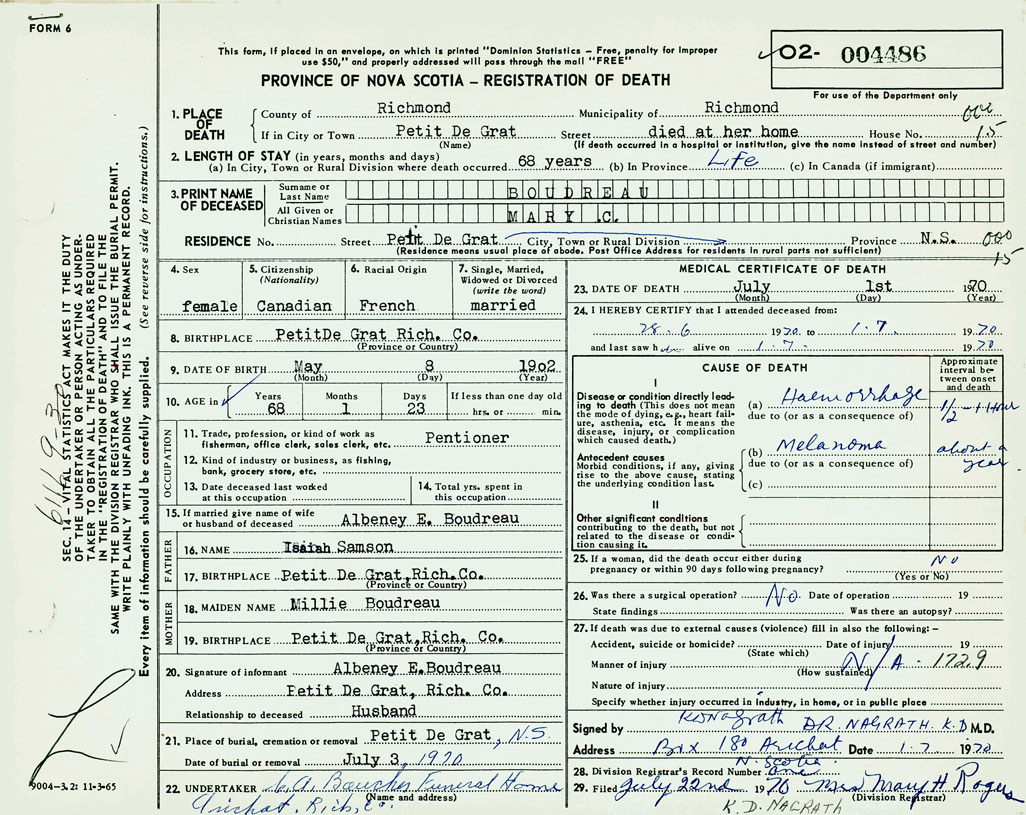 FORM 6
This form, if placed in an envelope, on which is printed "Dominion Statistics – Free, penalty for improper
use $50," and properly addressed will pass through the mail "FREE"
PROVINCE OF NOVA SCOTIA – REGISTRATION OF DEATH
O2- 004486
For use of the Department only
1. PLACE OF DEATH County of Richmond Municipality of Richmond
If in City or Town Petit De Grat Street died at her home House No. 15
(Name) (If death occurred in a hospital or institution, give the name instead of street and number)
2. LENGTH OF STAY (in years, months and days)
(a) In City, Town or Rural Division where death occurred 68 years (b) In Province Life (c) In Canada (if immigrant)
3. PRINT NAME OF DECEASED Surname or Last Name BOUDREAU
All Given or Christian Names MARY .C.
RESIDENCE No. Street Petit De Grat City, Town or Rural Division Province N.S. 000
(Residence means usual place of abode. Post Office Address for residents in rural parts not sufficient) 15
4. Sex female
5. Citizenship (Nationality) Canadian
6. Racial Origin French
7. Single, Married, Widowed or Divorced (write the word) married
8. BIRTHPLACE PetitDe Grat Rich. Co.
(Province or Country)
9. DATE OF BIRTH May 8 19o2
(Month) (Day) (Year)
10. AGE in Years 68 Months 1 Days 23 If less than one day old hrs. or min.
OCCUPATION
11. Trade, profession, or kind of work as fisherman, office clerk, sales clerk, etc. Pentioner
12. Kind of industry or business, as fishing, bank, grocery store, etc.
13. Date deceased last worked at this occupation
14. Total yrs. spent in this occupation
15. If married give name of wife or husband of deceased Albeney E. Boudreau
FATHER
16. NAME Isaiah Samson
17. BIRTHPLACE Petit De Grat,Rich.Co.
(Province or Country)
MOTHER
18. MAIDEN NAME Millie Boudreau
19. BIRTHPLACE Petit De Grat,Rich. Co.
(Province or Country)
20. Signature of informant Albeney E.Boudreau
Address Petit De Grat, Rich. Co.
Relationship to deceased Husband
21. Place of burial, cremation or removal Petit De Grat, N.S.
Date of burial or removal July 3, 1970
22. UNDERTAKER C.A. Boucher Funeral Home
(Name and address)
Arichat, Rich, Co.
MEDICAL CERTIFICATE OF DEATH
23. DATE OF DEATH July 1st 1970
(Month) (Day) (Year)
24. I HEREBY CERTIFY that I attended deceased from:
28.6 1970 to 1.7. 1970
and last saw her alive on 1.7. 1970
CAUSE OF DEATH
Approximate interval between onset and death
I
Disease or condition directly leading to death (This does not mean the mode of dying, e.g., heart failure, asthenia, etc. It means the disease, injury, or complication which caused death.)
(a) Haemorrhage 1/2 - 1 Hour
due to (or as a consequence of)
Antecedent causes
Morbid conditions, if any, giving rise to the above cause, stating the underlying condition last.
(b) Melanoma about a year
due to (or as a consequence of)
(c)
II
Other significant conditions contributing to the death, but not related to the disease or condition causing it.
25. If a woman, did the death occur either during pregnancy or within 90 days following pregnancy? No
(Yes or No)
26. Was there a surgical operation? No. Date of operation 19
State findings Was there an autopsy?
27. If death was due to external causes (violence) fill in also the following: –
Accident, suicide or homicide? Date of injury 19
(State which)
Manner of injury N/A - 1729
(How sustained)
Nature of injury
Specify whether injury occurred in industry, in home, or in public place
Signed by KDNagrath DR. NAGRATH. K.D M.D.
Address Box 180 Arichat Date 1.7 1970
N. Scotia
28. Division Registrar's Record Number
29. Filed July 22nd 1970 Mrs Mary H Rogers
(Division Registrar)
K.D. NAGRATH
SEC. 14 – VITAL STATISTICS ACT MAKES IT THE DUTY
OF THE UNDERTAKER OR PERSON ACTING AS UNDER-
TAKER TO OBTAIN ALL THE PARTICULARS REQUIRED
IN THE "REGISTRATION OF DEATH" AND TO FILE THE
SAME WITH THE DIVISION REGISTRAR WHO SHALL ISSUE THE BURIAL PERMIT.
WRITE PLAINLY WITH UNFADING INK. THIS IS A PERMANENT RECORD.
Every item of information should be carefully supplied. (See reverse side for instructions.)
9004-3.2: 11-3-65